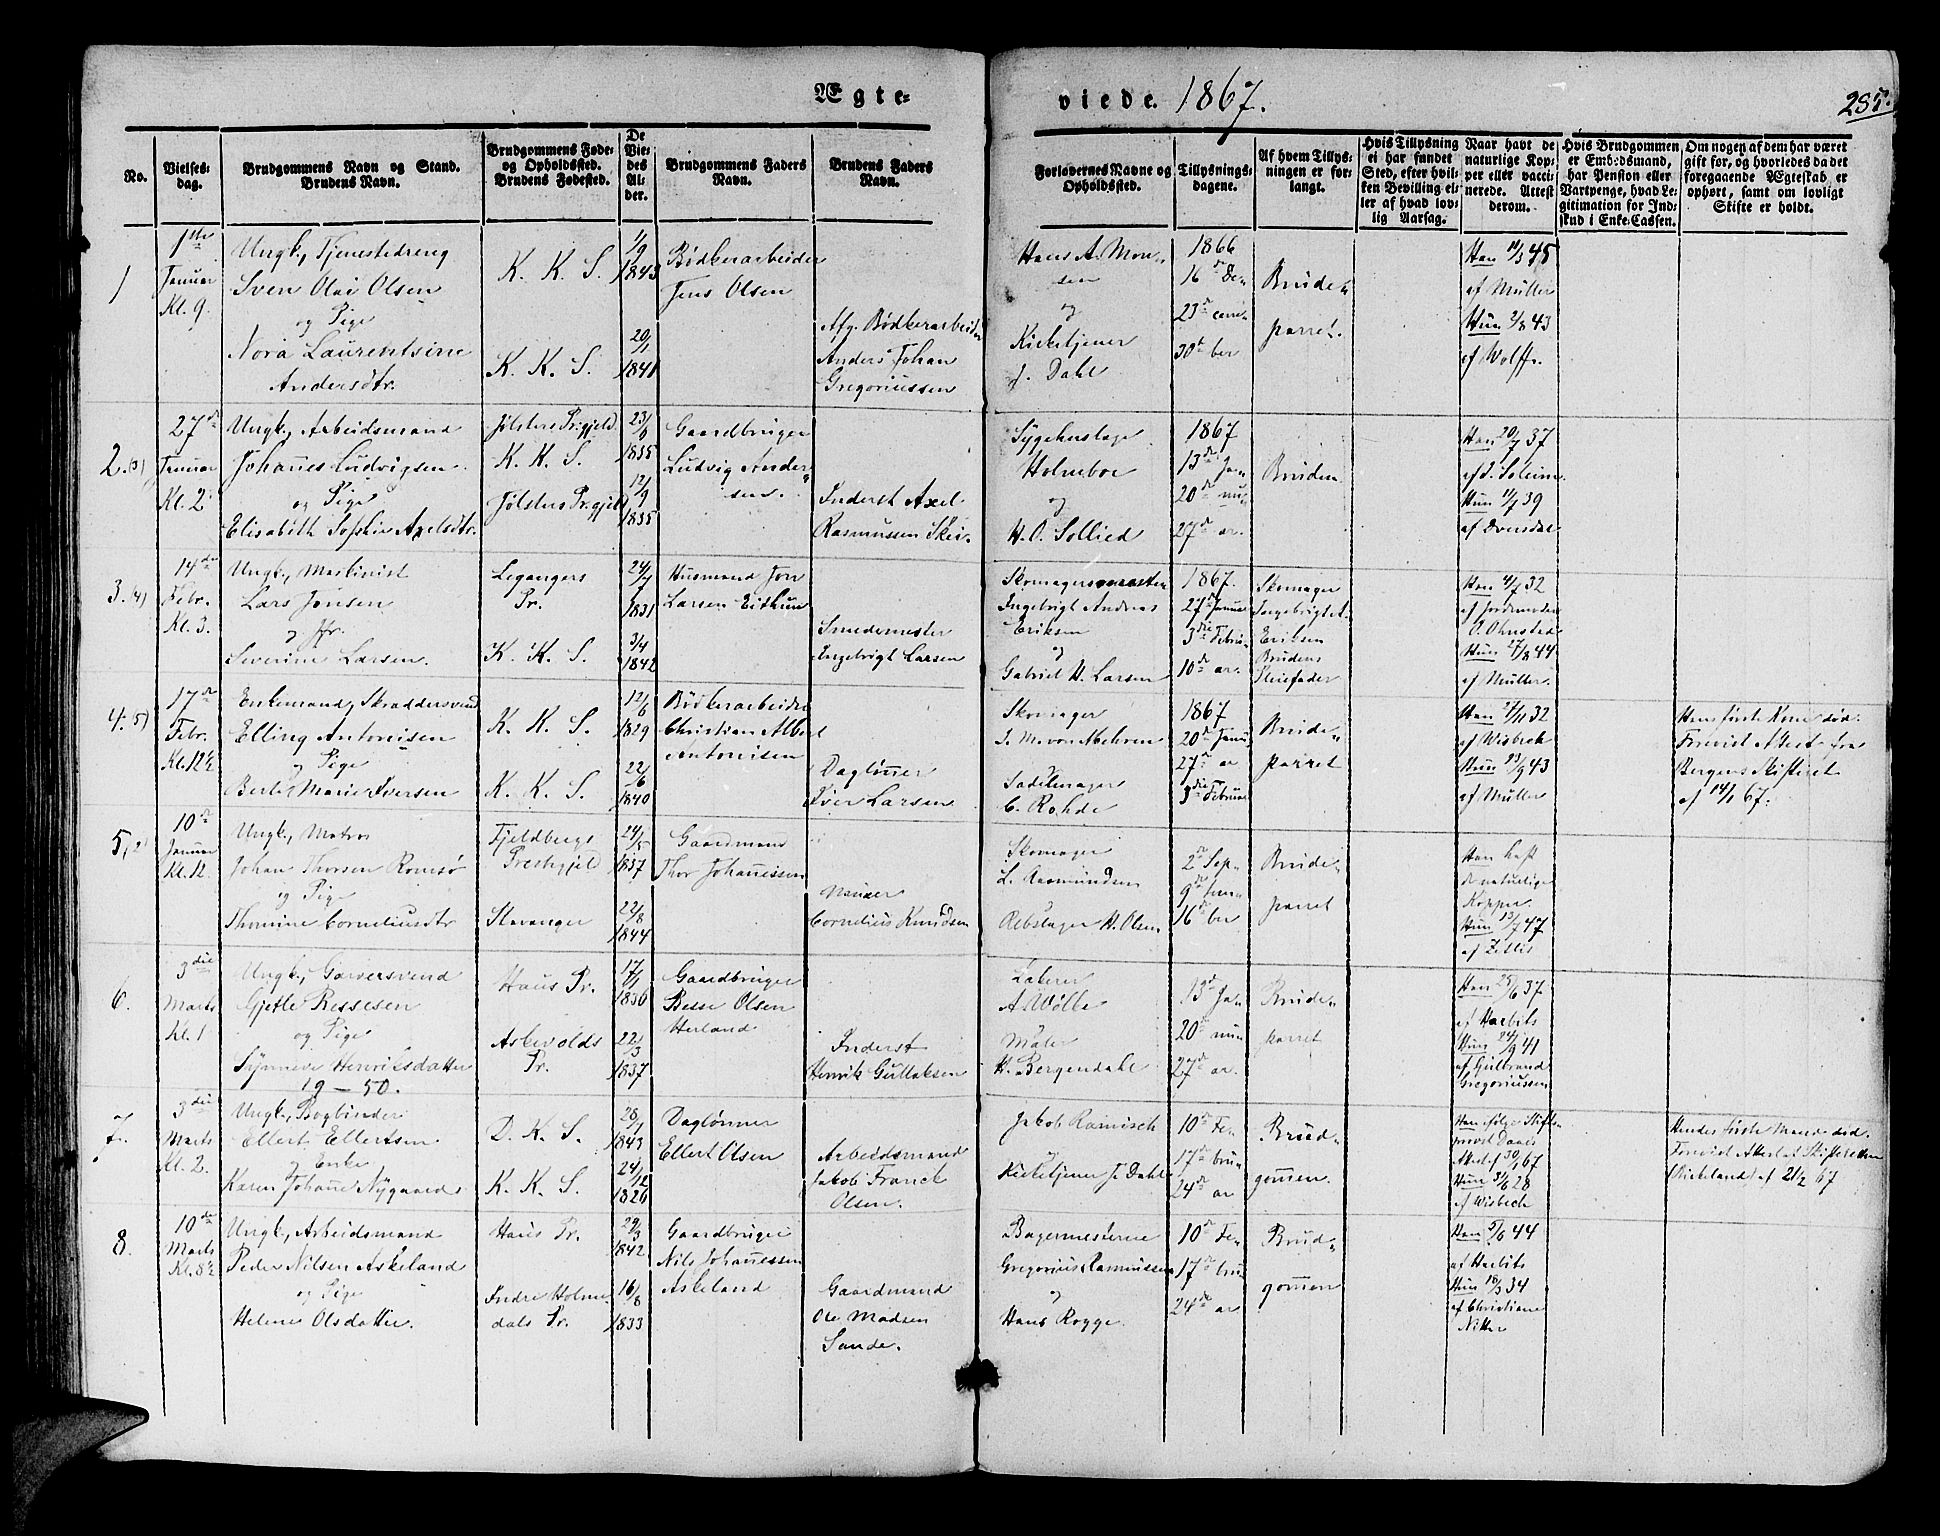 Ægte=
viede. 1867.
285.
No.
Vielses-
dag.
Brudgommens Navn og Stand.
Brudens Navn.
Brudgommens Føde-
og Opholdssted.
Brudens Fødested.
De
Vie-
des
Al-
der.
Brudgommens Faders
Navn.
Brudens Faders
Navn.
Forlovernes Navne og
Opholdssted.
Tillysnings-
dagene.
Af hvem Tillys-
ningen er for-
langt.
Hvis Tillysning
ei har fundet
Sted, efter hvil-
ken Bevilling el-
ler af hvad lov-
lig Aarsag.
Naar havt de
naturlige Kop-
per eller vacci-
nerede. Attest
derom.
Hvis Brudgommen
er Embedsmand,
har Pension eller
Vartpenge, hvad Le-
gitimation for Ind-
skud i Enke-Cassen.
Om nogen af dem har været
gift før, og hvorledes da det
foregaaende Ægteskab er
ophørt, samt om lovligt
Skifte er holdt.
1
1ste
Januar
Kl. 9.
Ungk., Tjenestedreng
Sven Olai Olsen
og Pige
Nora Laurentsine
Andersdtr.
K. K. S.
K. K. S.
1/9
1843
20/1
1841
Bødkerarbeider
Jens Olsen
Afg. Bødkerarbeider
Anders Johan
Gregoriussen
Hans A. Mon-
sen
og
Kirketjener
J. Dahl
1866
16de De-
23de cem-
30te ber
Brude-
parret.
Han 11/3 45
af Müller
Hun 2/8 43
af Wolff.
2. (3)
27de
Januar
Kl. 2
Ungk., Arbeidsmand
Johannes Ludvigsen
og Pige
Elisabeth Sophie Axelsdtr.
Jølsters Prgjeld
K. K. S.
Jølsters Prgjeld
23/6
1835
12/9
1835
Gaardbruger
Ludvig Ander-
sen.
Inderst Axel
Rasmussen Skei.
Sygehuslage
Holmboe
og
H. O. Sollied
1867
13de Ja-
20de nu-
27de ar.
Bruden
Han 20/7 37
af J. Soleim
Hun 11/7 39
af Dvergsdal
3. (4)
14de
Febr.
Kl. 3.
Ungk., Maskinist
Lars Jonsen
og Jfr.
Severine Larsen.
Legangers
Pr.
K. K. S.
24/7
1831
3/4
1842
Husmand Jon
Larsen Eithun
Smedemester
Ingebrigt Larsen
Skomagermester
Ingebrigt Andreas
Eriksen
og
Gabriel H. Larsen
1867.
27de Janua
3die Febru-
10de ar.
Skomager
Ingebrigt A.
Eriksen
Brudens
Pleiefader
Han 4/7 32
af Jordemoder
O. Ohnstad
Hun 27/8 44
af Müller.
4. (5)
17de
Febr.
Kl. 12½
Enkemand, Skræddersvend
Elling Antonisen
og Pige
Berte Marie Iversen
K. K. S.
K. K. S.
12/6
1829
22/6
1840
Bødkerarbeider
Christian Albert
Antonisen
Daglønner
Iver Larsen
Skomager
J. M. von Mehren
Sadelmager
C. Rohde
1867
20de Janu
27de ar
3die Februar
Brude-
parret
Han 24/11 32
af Wisbech
Hun 23/9 43
af Müller
Hans første Kone død.
Foreviist Attest fra
Bergens Skifteret
af 14/1 67.
5, (2)
10de
Januar
Kl. 12.
Ungk., Matros
Johan Thorsen Romsø
og Pige
Thomine Corneliusdtr
Fjeldbergs
Prestegjeld
Stavanger
24/5
1837
22/8
1844
Gaardmand
Thor Johannessen
Murer
Cornelius Knudsen
Skomager
L. Rasmundsen
og
Rebslager H. Olsen
2de Sep-
9de tem-
16de ber
Brude-
parret
Han haft
de naturlige
Kopper
Hun 13/7 47
af Zetlis
6.
3die
Marts
Kl. 1
Ungk., Garversvend
Gjetle Bessesen
og Pige
Synneve Henriksdatter
19 — 50.
Haus Pr.
Askevolds
Pr.
17/1
1836
22/3
1837
Gaardbruger
Besse Olsen
Herland
Inderst
Henrik Gullaksen
Lakerer
A. Wölle
og
Maler
H. Bergendahl
13de Ja-
20de nu
27de ar.
Brude-
parret
Han 25/6 37
af Harbits
Hun 24/9 41
af Gulbrand
Gregoriussen
7.
3die
Marts
Kl. 2.
Ungk., Bogbinder
Ellert Ellertsen
og Enke
Karen Johanne Nygaard
D. K. S.
K. K. S.
28/1
1843
24/12
1826
Daglønner
Ellert Olsen
Arbeidsmand
Jakob Franck
Olsen.
Jakob Ramisch
og
Kirketjener J. Dahl
10de Fe-
17de bru-
24de ar
Brud-
gommen.
Han ifølge Stifts-
provst Daaes
Attest af 30/1 67
Hun 3/6 28
af Wisbech
Hendes første Mand død.
Foreviist Attest af Skifteretten
Birkeland af 21/2 67
8.
10de
Marts
Kl. 8½
Ungk., Arbeidsmand
Peder Nilsen Askeland
og Pige
Helene Olsdatter.
Haus Pr.
Indre Holme-
dals Pr.
29/3
1842
16/8
1833
Gaardbruger
Nils Johannessen
Askeland
Gaardmand
Ole Madsen
Sande.
Bagermesterne
Gregorius Rasmussen
og
Hans Rogge.
10de Fe-
17de bru
24de ar
Brud-
gommen
Han 5/6 44
af Harbits
Hun 16/3 34
af Christiane
Nitter